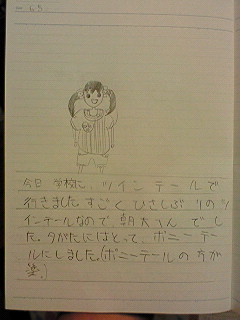 今日 学校に、ツイン テールで
行きました すごく ひさしぶりのツ
インテールなので 朝大へんでし
た。夕がたにはとって、ポニーテー
ルにしました。(ポニーテールの方が
楽。)